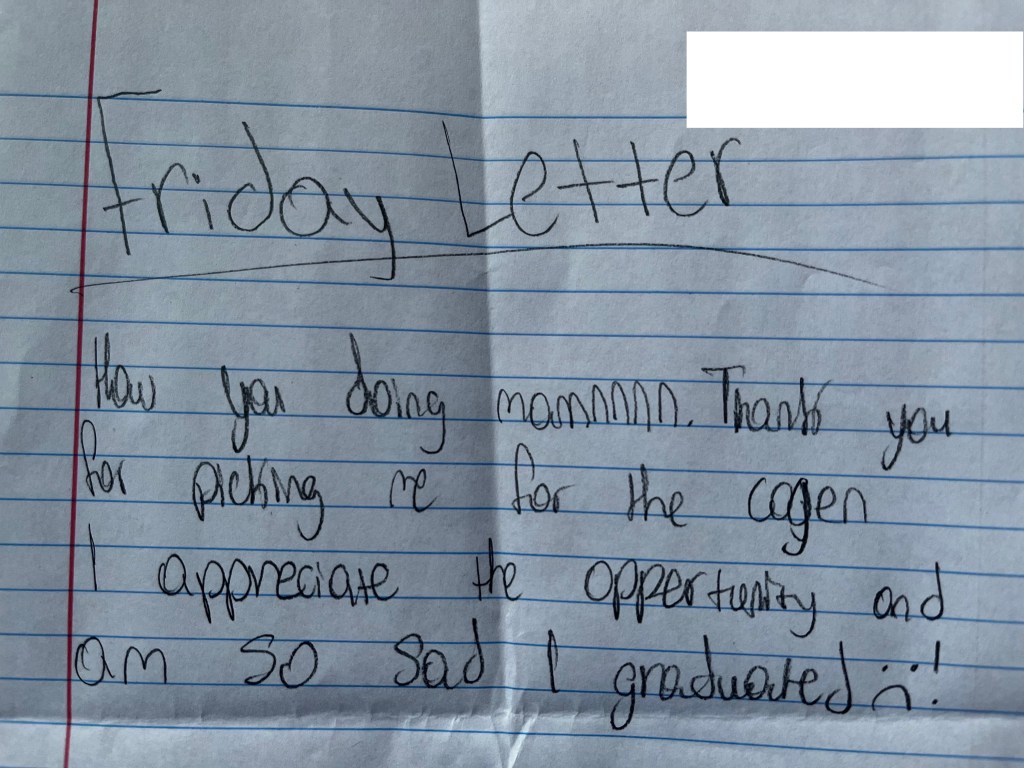 Friday Letter
How you doing mamnnnn. Thank you
for picking me for the cogen
I appreciate the oppertunity and
am so sad I graduated :(!